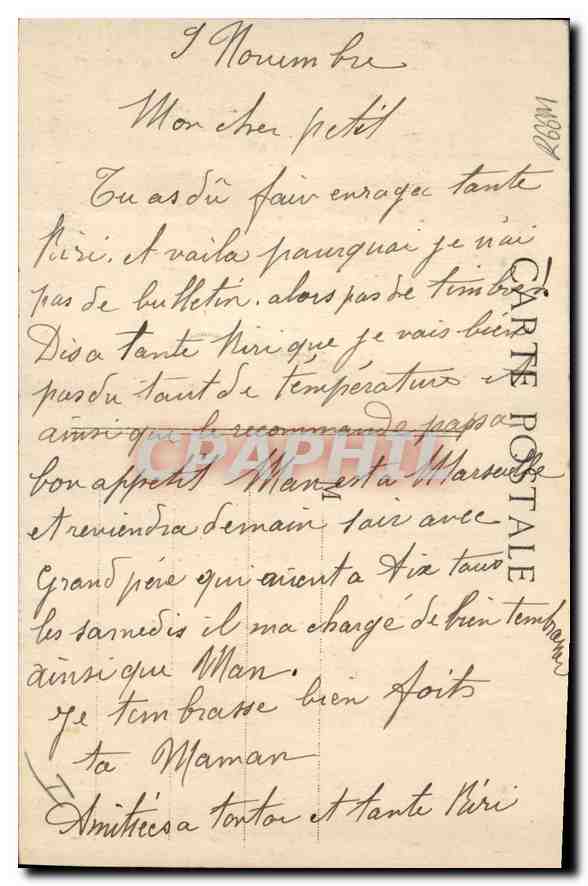 9 Novembre
Mon cher petit
Tu as dû fair enrager tante
Riri. et voila pourquoi je n'ai
pas de bulletin. alors pas de timbres
Dis a tante Riri que je vais bien
pas du tout de température et
ainsi que le recommande papa
bon appetit Man est a Marseille
et reviendra demain soir avec
Grand père qui vient a Aix tous
les samedis il ma chargé de bien tembrasser
ainsi que Man.
Je tembrasse bien forts
ta Maman
Amitiées a tonton et tante Riri
CARTE POSTALE
M
CPAPHIL